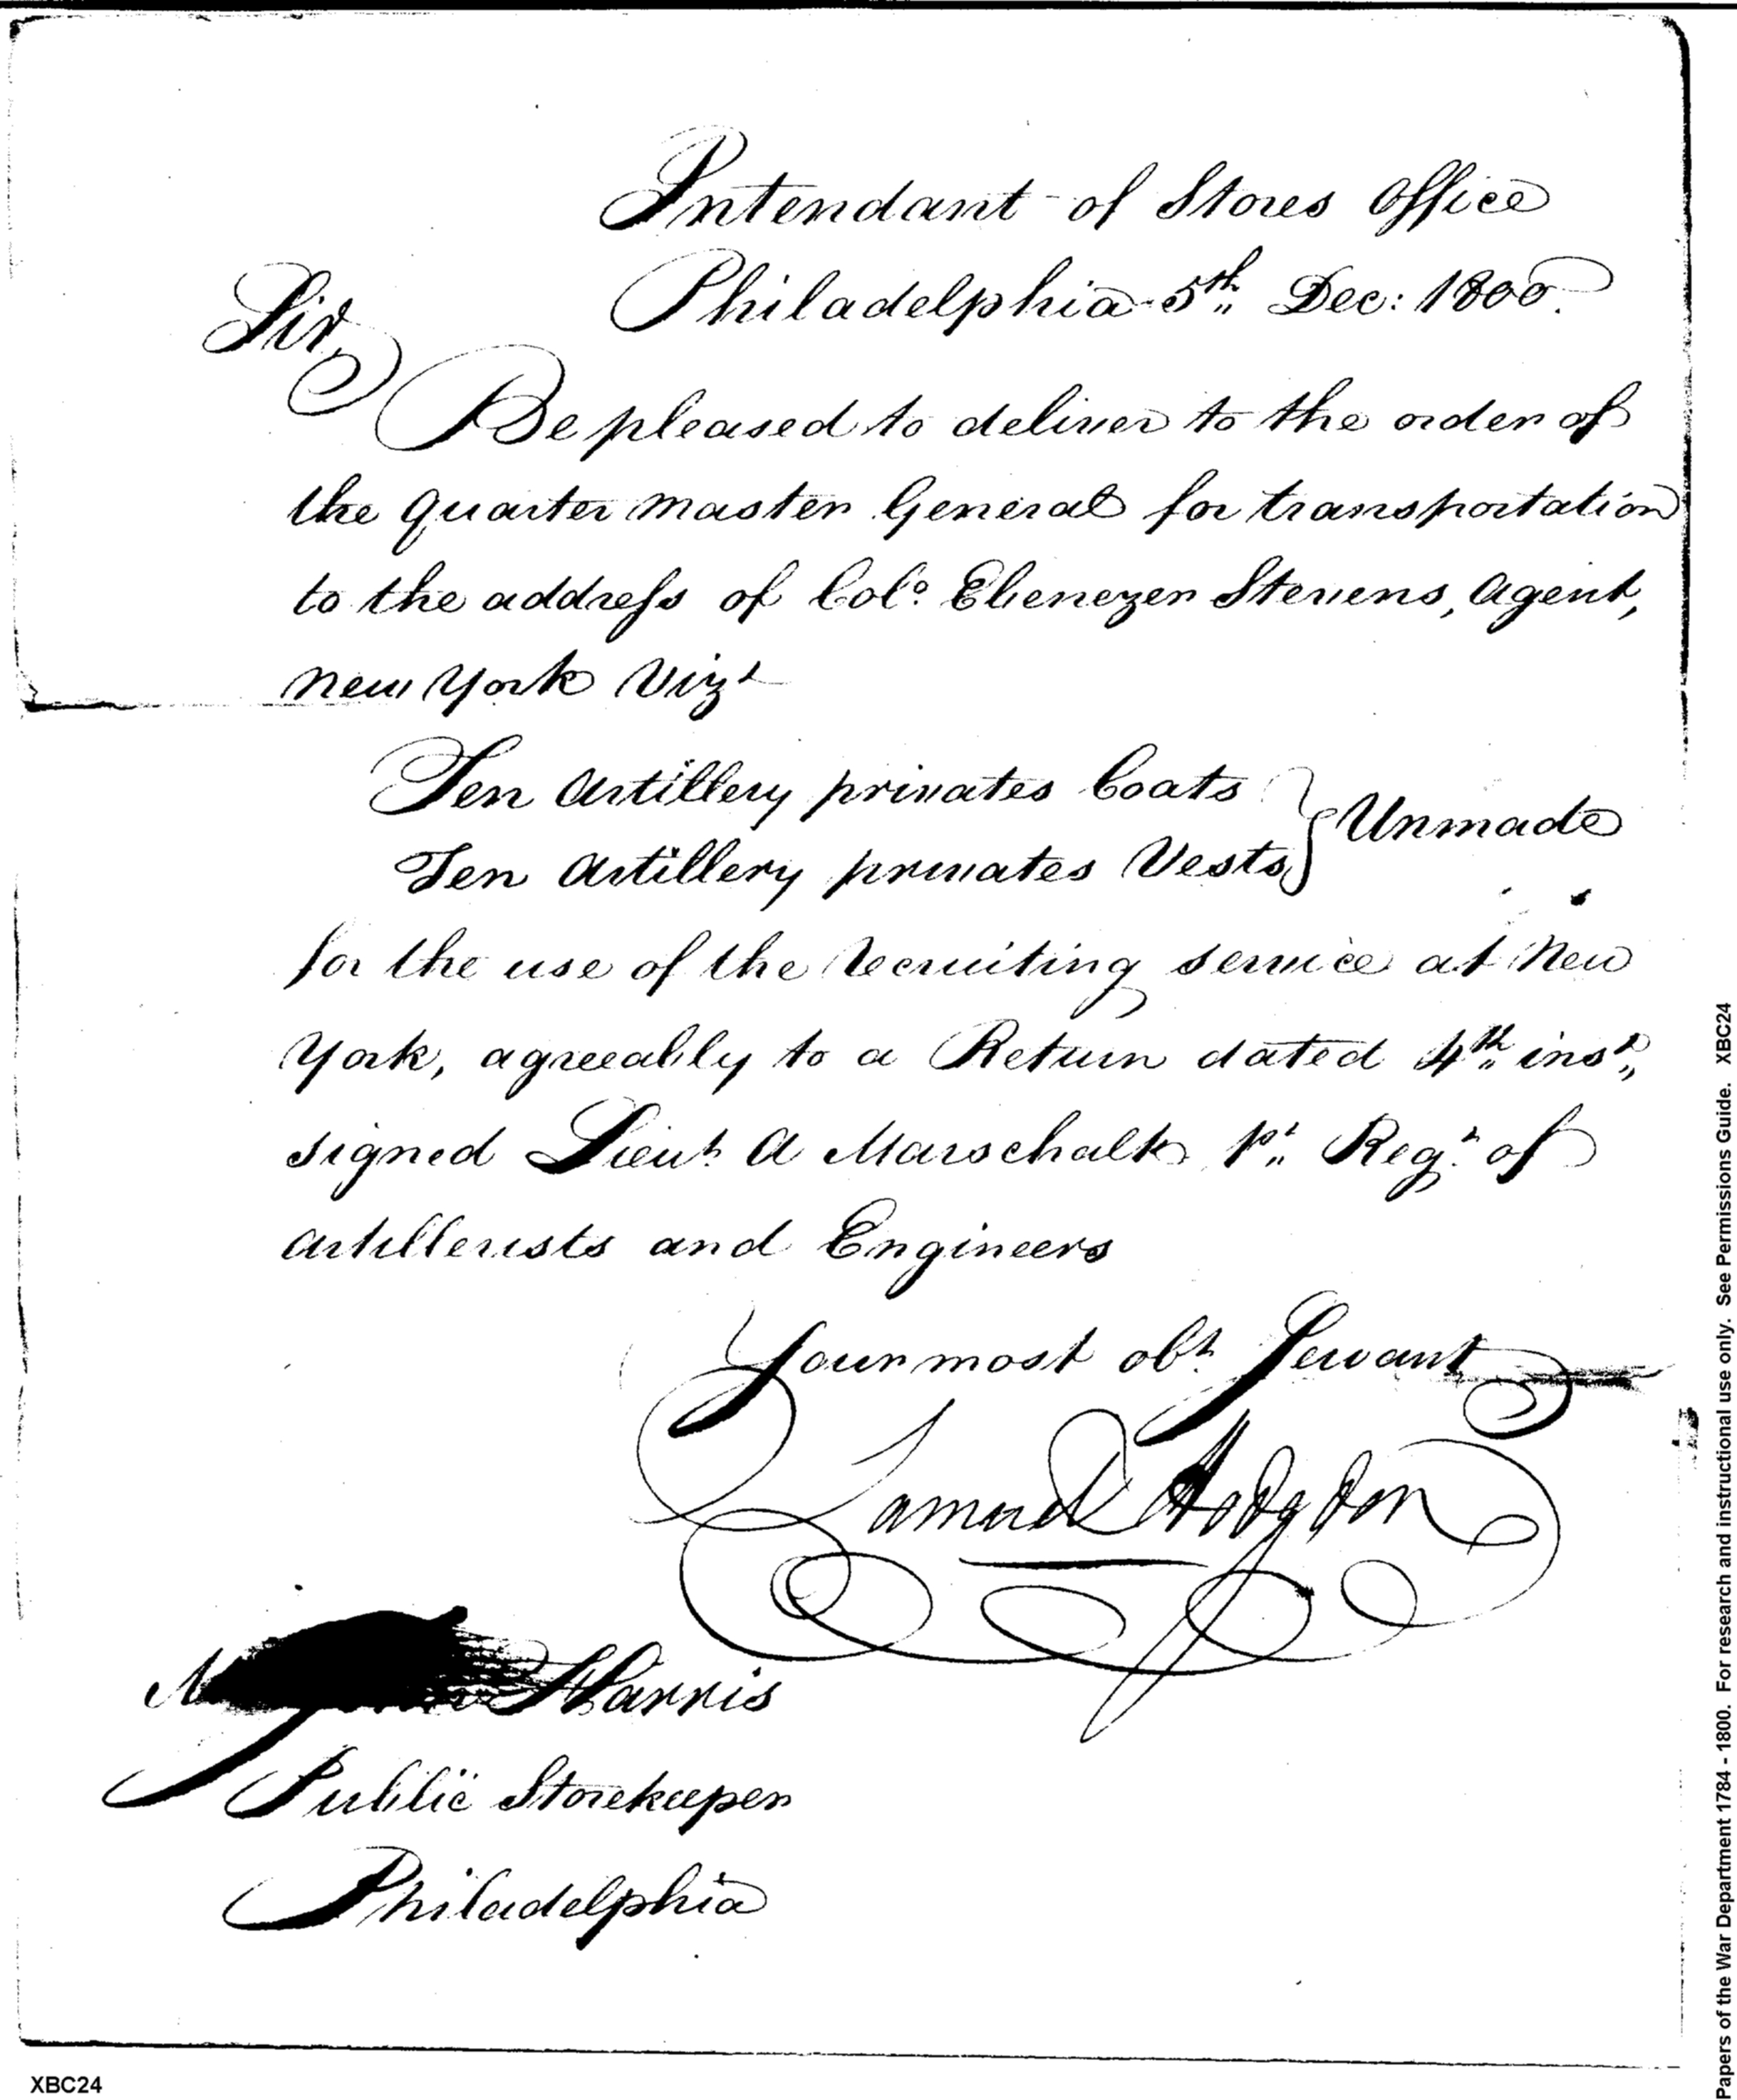 Intendant of Stores Office
Philadelphia 5th Dec: 1800.
Sir,
Be pleased to deliver to the order of
the Quarter Master General for transportation
to the address of Colo. Ebenezer Stevens, Agent,
New York Vizt
Ten Artillery privates Coats
Ten Artillery privates Vests } Unmade
for the use of the recruiting service at New
York, agreeably to a Return dated 4th inst,
signed Lieut. A Marschalk 1st Regt. of
Artillerists and Engineers
Your most obt. Servant
Samuel Hodgdon
Harris
Public Storekeeper
Philadelphia
XBC24
Papers of the War Department 1784 - 1800. For research and instructional use only. See Permissions Guide. XBC24